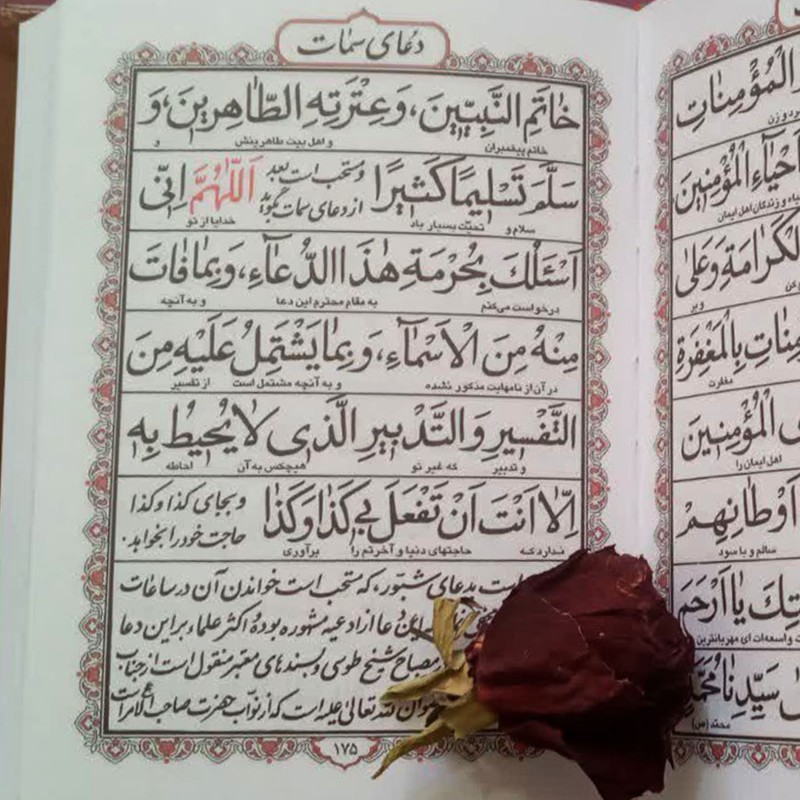 دعای سمات
خاتَمِ النَّبِیّینَ، وَعِتْرَتِهِ الطّاهِرینَ، وَ
خاتم پیغمبران و اهل بیت طاهرینش و
سَلَّمَ تَسْلیمًا کَثیرًا و مستحب است بعد از دعای سمات بگوید اَللّهُمَّ اِنّی
سلام و تحیّت بسیار باد خدایا از تو
اَسْئَلُكَ بِحُرْمَةِ هٰذَا الدُّعاءِ، وَبِمافاتَ
درخواست می‌کنم به مقام محترم این دعا و به آنچه
مِنْهُ مِنَ الْاَسْماءِ، وَبِما یَشْتَمِلُ عَلَیْهِ مِنَ
در آن از نامهایت مذکور نشده و به آنچه مشتمل است از تفسیر
التَّفْسیرِ وَالتَّدْبیرِ الَّذی لا یُحیطُ بِه
و تدبیر که غیر تو هیچکس به آن احاطه
اِلّا اَنْتَ اَنْ تَفْعَلَ بی کَذا وَکَذا و بجای کذا و کذا حاجت خود را بخواهد.
ندارد که حاجتهای دنیا و آخرتم را برآوری
بدعای شبّور، که مستحب است خواندن آن در ساعات
این دعا از ادعیه مشهوره بوده اکثر علماء بر این دعا
مصباح شیخ طوسی و بسندهای معتبر منقول است از جناب
الله تعالی علیه است که از نوّاب حضرت صاحب الامر است
۱۷۵
الْمُؤْمِناتِ
و زن
اَحْیاءِ الْمُؤْمِنینَ
و زندگان اهل ایمان
الْکَرامَةِ وَعَلی
و بر
بِالْمَغْفِرَةِ
مغفرت
الْمُؤْمِنینَ
اهل ایمان را
اَوْطانِهِمْ
سالم و با سود
یا اَرْحَمَ
واسعه‌ات ای مهربانترین
سَیِّدِنا مُحَمَّدٍ
محمّد (ص)